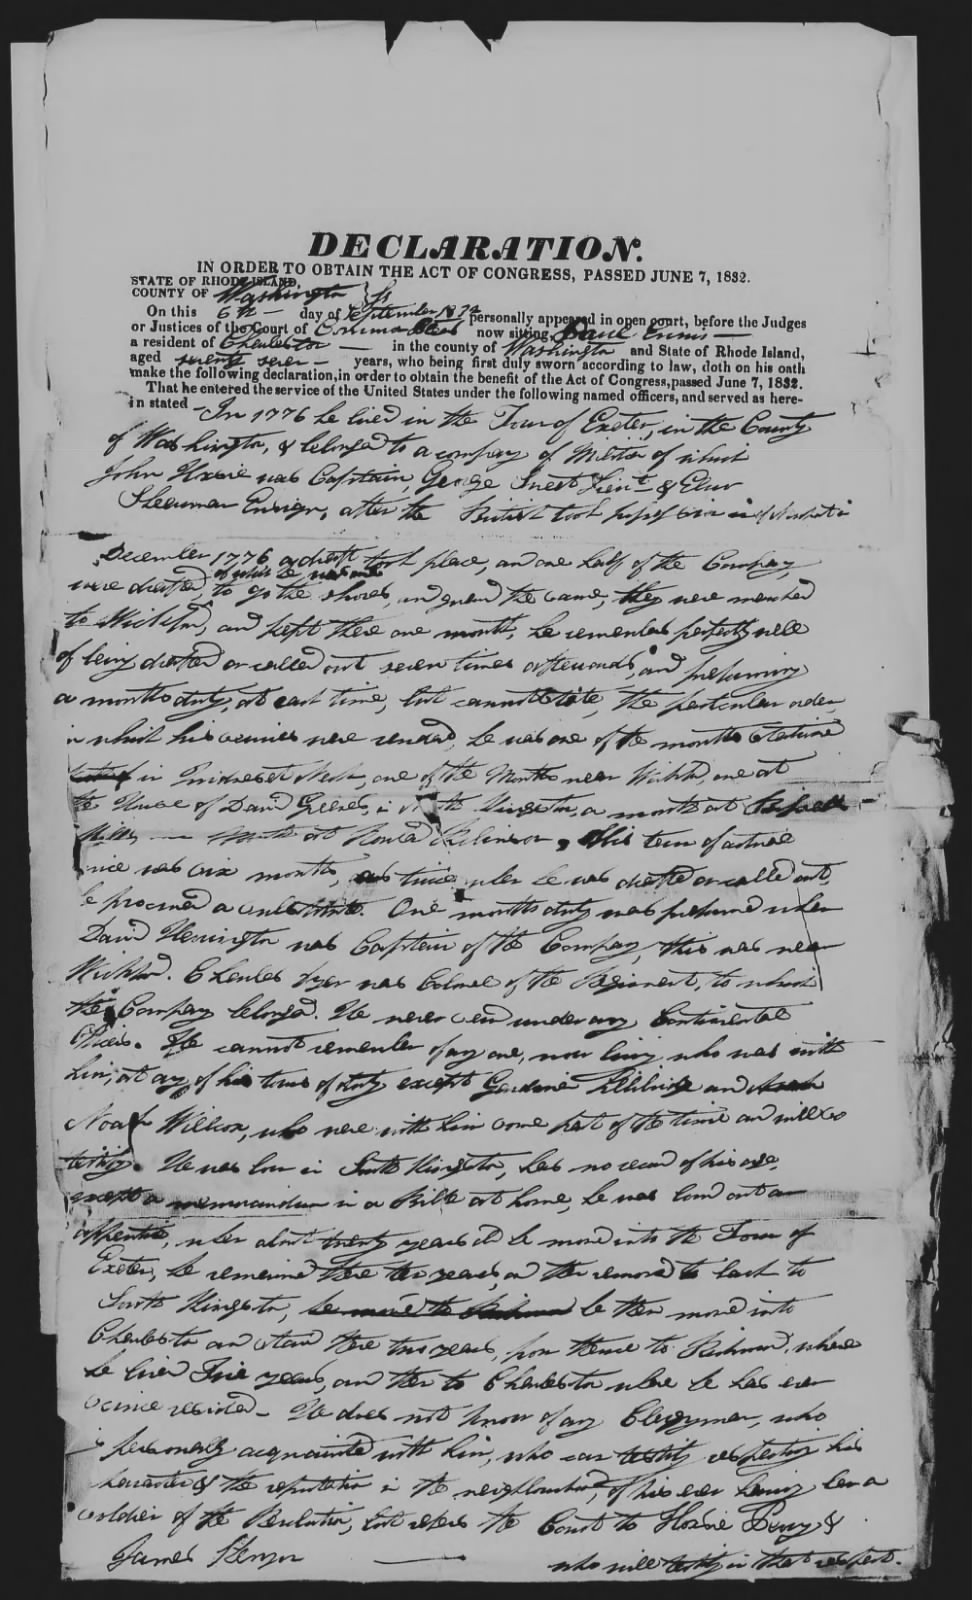 DECLARATION.
IN ORDER TO OBTAIN THE ACT OF CONGRESS, PASSED JUNE 7, 1832.
STATE OF RHODE ISLAND,
COUNTY OF Washington } Ss
On this 6th day of September 1832 personally appeared in open court, before the Judges
or Justices of the Court of Common Pleas now sitting, Paul Ennis
a resident of Charlestown in the county of Washington and State of Rhode Island,
aged seventy seven years, who being first duly sworn according to law, doth on his oath
make the following declaration, in order to obtain the benefit of the Act of Congress, passed June 7, 1832.
That he entered the service of the United States under the following named officers, and served as here-
in stated - In 1776 he lived in the Town of Exeter, in the County
of Washington, & belonged to a company of Militia of which
John Hoxsie was Captain George Lieut &
Sheerman Ensign, after the British took possession of
December 1776 a draft took place, and one half of the Company,
of which he was one
were drafted, to go the shores, and guard the same, they were marched
to Wickford, and kept there one month, he remembers perfectly well
of being drafted or called out seven times afterwards, and performing
a months duty, at each time, but cannot state, the particular order,
in which his services were rendered, he was one of the months stationed
in Neck, one of the Months near Wickford, one at
the House of David Greenes, in North Kingstown, a month at
Mills Month at Robinson, This term of actual
service was six months, twice when he was drafted or called out,
he procured a substitute. One months duty was performed when
David Herrington was Captain of the Company, this was near
Wickford. Charles Dyer was Colonel of the Regiment, to which
the Company belonged. He never served under any Continental
Officers. He cannot remember of any one, now living who was with
him, at any of his tours of duty except Gardner and
Noah Willcox, who were with him some part of the time and will so
testify. He was born in South Kingstown, has no record of his age,
except a memorandum in a Bible at home, he was bound out an
apprentice, when about twenty years old he moved into the Town of
Exeter, he remained there ten years, and then removed to back to
South Kingstown, he then moved into
Charlestown and staid there two years, from thence to Richmond, where
he lived Five years, and then to Charlestown where he has ever
since resided - He does not know of any Clergyman, who
is personally acquainted with him, who can testify respecting his
character & the reputation in the neighbourhood, of his ever having been a
soldier of the Revolution, but refers the Court to Hoxsie Perry &
James
who will testify in that respect.